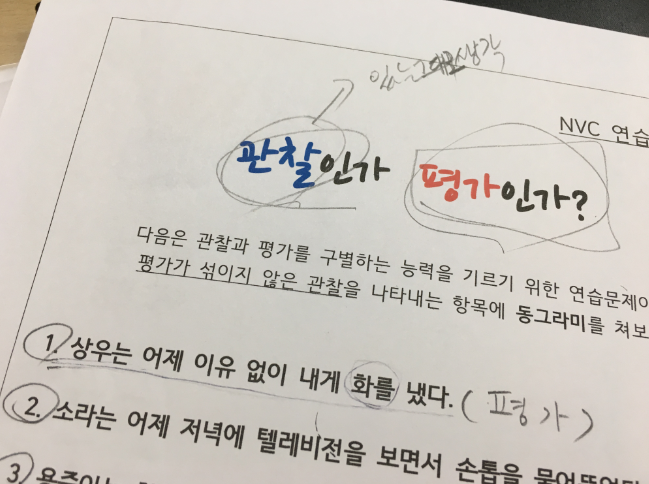 있는그대로 생각
NVC 연습
관찰인가 평가인가?
다음은 관찰과 평가를 구별하는 능력을 기르기 위한 연습문제이
평가가 섞이지 않은 관찰을 나타내는 항목에 동그라미를 쳐보
1. 상우는 어제 이유 없이 내게 화를 냈다. (평가)
2. 소라는 어제 저녁에 텔레비전을 보면서 손톱을 물어뜯었다
3.